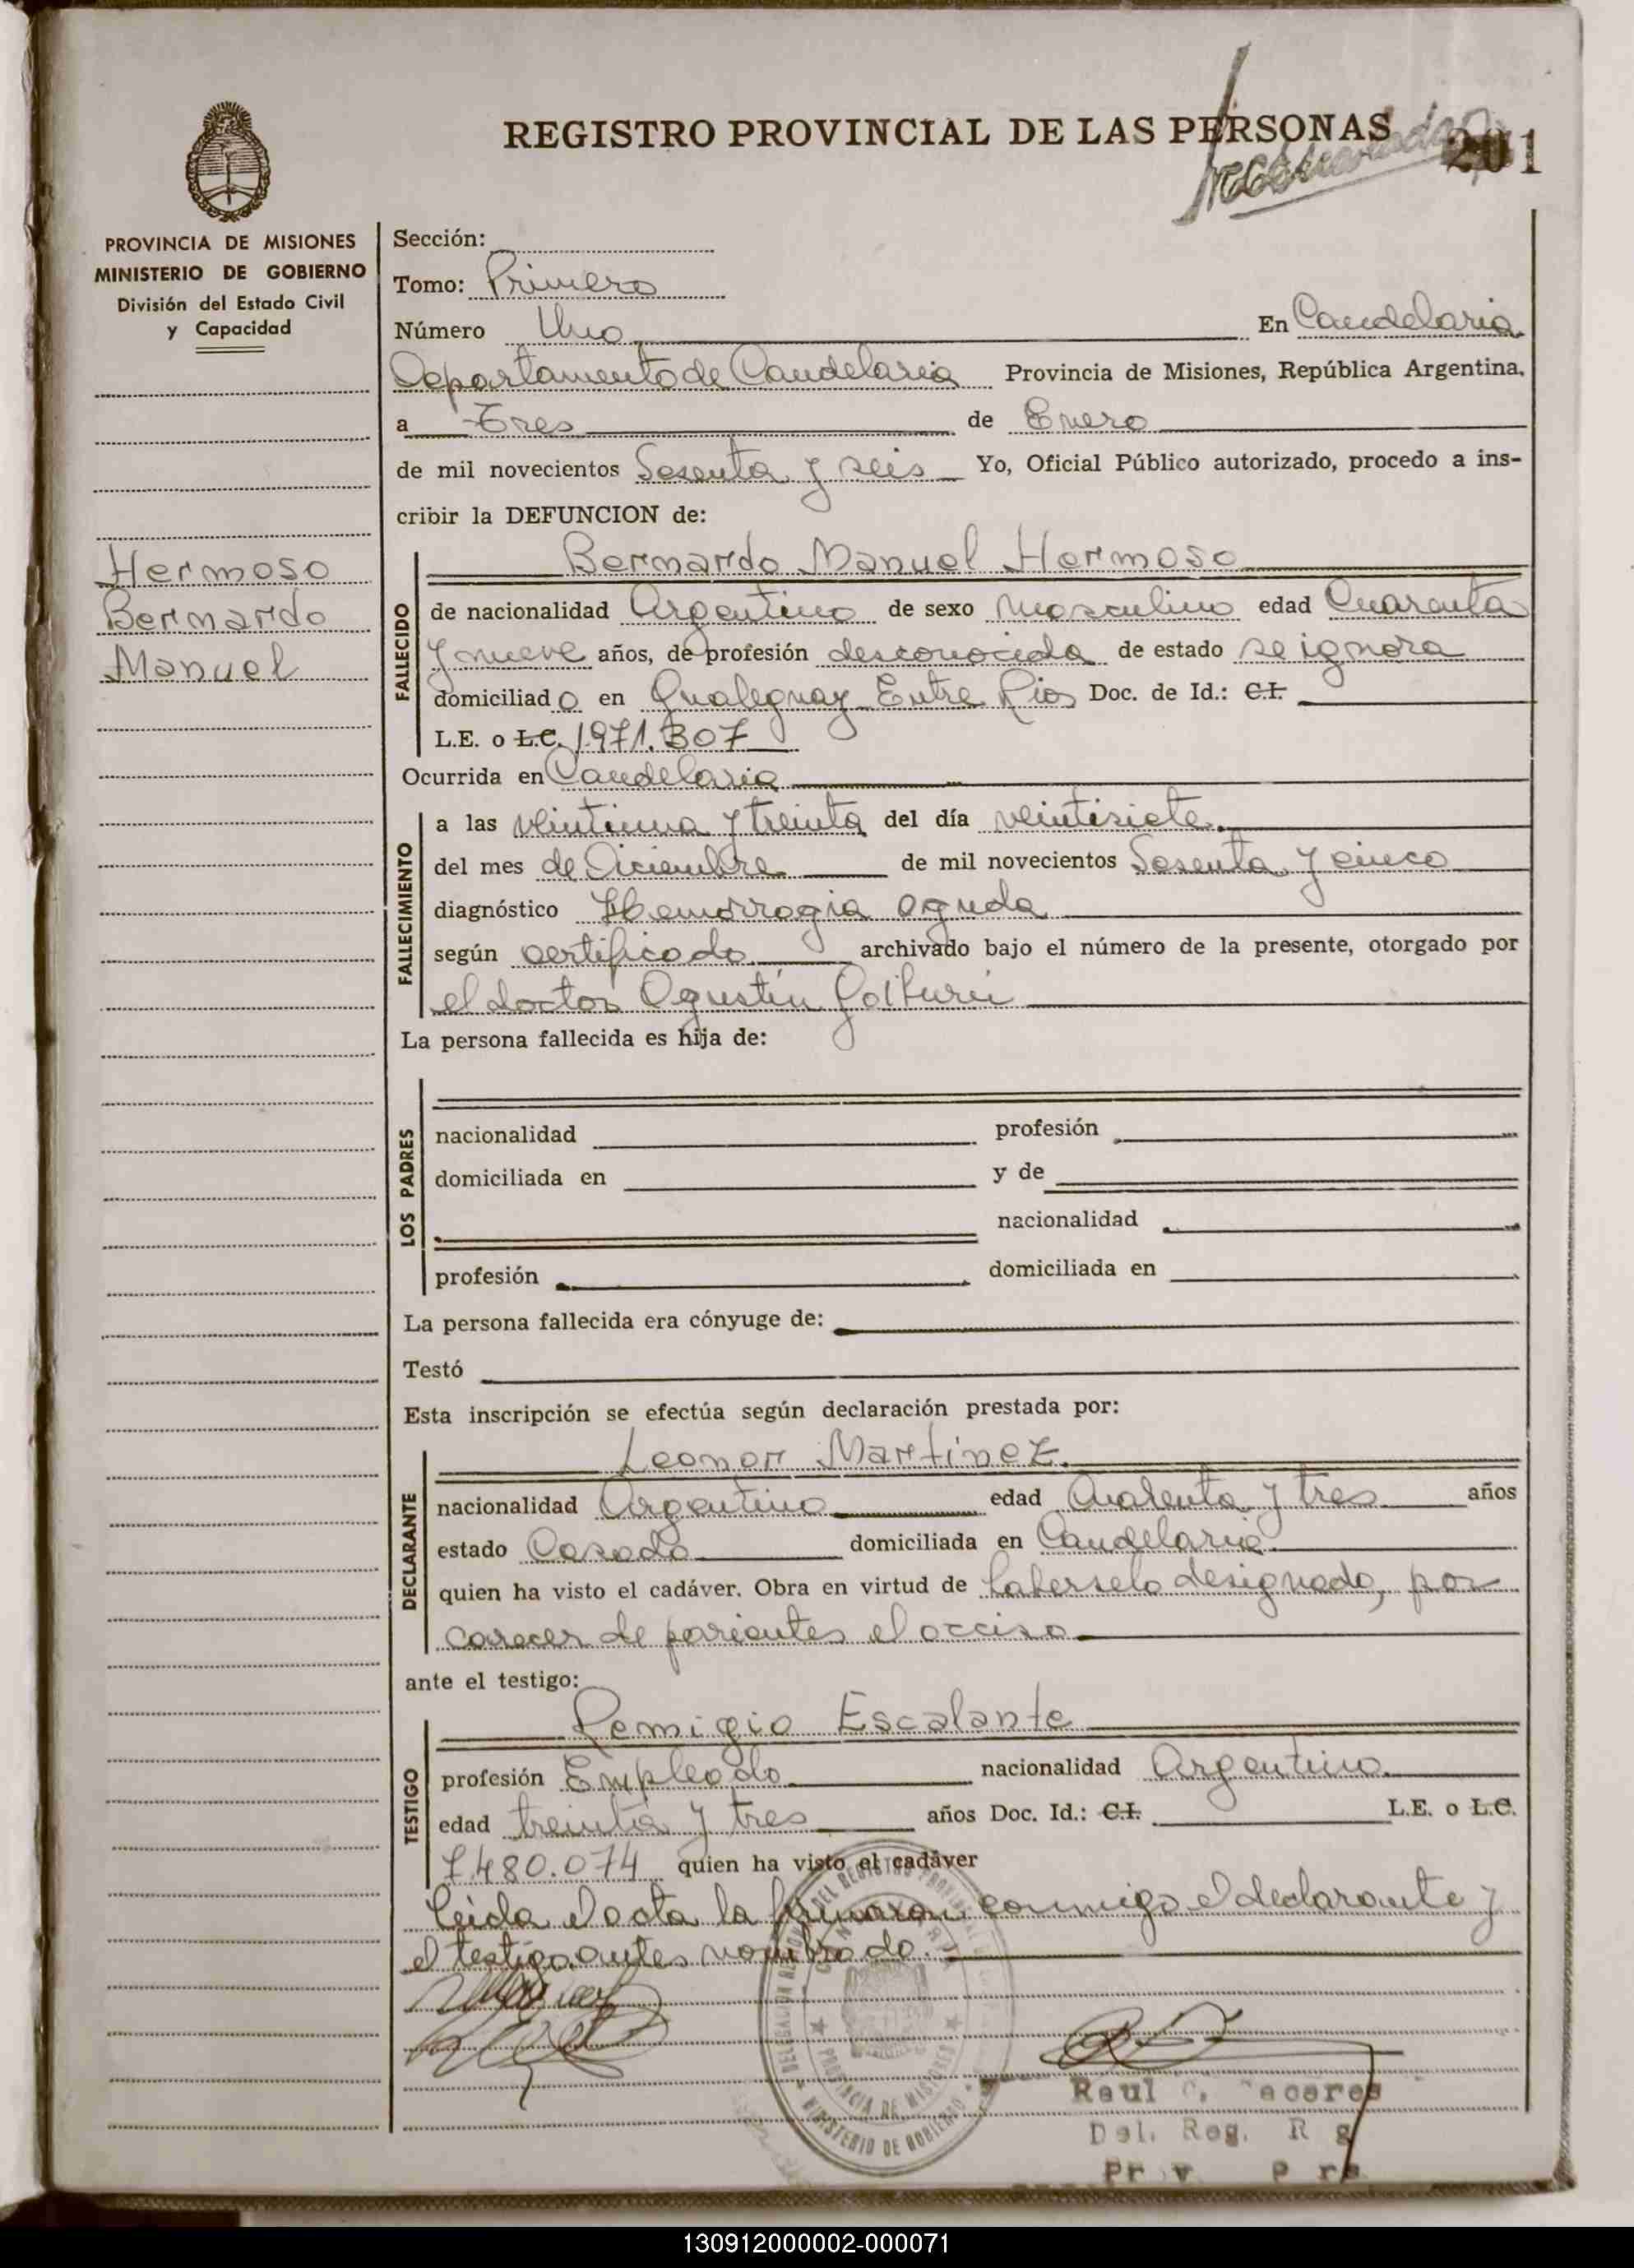 REGISTRO PROVINCIAL DE LAS PERSONAS
201
PROVINCIA DE MISIONES
MINISTERIO DE GOBIERNO
División del Estado Civil
y Capacidad
Hermoso
Bernardo
Manuel
Sección:
Tomo: Primero
Número Uno En Candelaria
Departamento de Candelaria Provincia de Misiones, República Argentina,
a Tres de Enero
de mil novecientos Sesenta y seis Yo, Oficial Público autorizado, procedo a ins-
cribir la DEFUNCION de:
FALLECIDO
Bernardo Manuel Hermoso
de nacionalidad Argentino de sexo masculino edad Cuarenta
y nueve años, de profesión desconocida de estado se ignora
domiciliado en Gualeguay Entre Rios Doc. de Id.: C.I.
L.E. o L.C. 1971.307
Ocurrida en Candelaria
FALLECIMIENTO
a las veintiuna y treinta del día veintisiete
del mes de Diciembre de mil novecientos Sesenta y cinco
diagnóstico Hemorragia aguda
según certificado archivado bajo el número de la presente, otorgado por
el doctor Agustín Goiburú
La persona fallecida es hija de:
LOS PADRES
nacionalidad profesión
domiciliada en y de
nacionalidad
profesión domiciliada en
La persona fallecida era cónyuge de:
Testó
Esta inscripción se efectúa según declaración prestada por:
DECLARANTE
Leonor Martínez.
nacionalidad Argentino edad Cuarenta y tres años
estado Casado domiciliada en Candelaria
quien ha visto el cadáver. Obra en virtud de haberselo designado, por
carecer de parientes el occiso
ante el testigo:
TESTIGO
Remigio Escalante
profesión Empleado nacionalidad Argentino
edad treinta y tres años Doc. Id.: C.I. L.E. o L.C.
7.480.074 quien ha visto el cadáver
Leida el acta la firmaron conmigo el declarante y
el testigo antes nombrado.
PROVINCIA DE MISIONES
MINISTERIO DE GOBIERNO
Raul C. Caceres
Del. Reg.
130912000002-000071